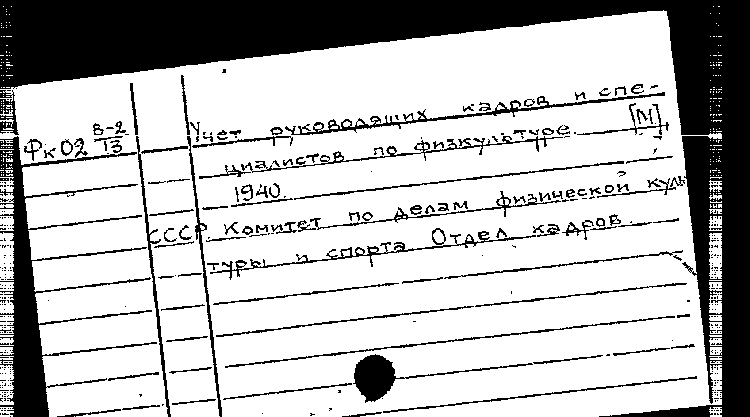 Фк02 8-2/13
Учет руководящих кадров и спе-
циалистов по физкультуре. [М],
1940.
СССР. Комитет по делам физической куль
туры и спорта Отдел кадров.